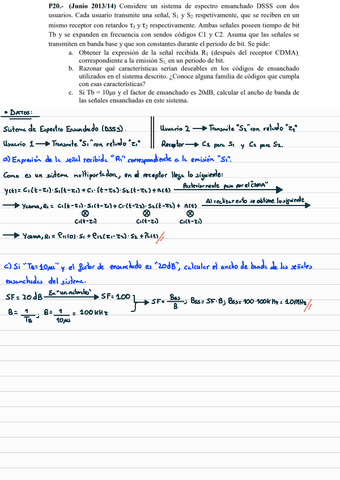 P20.- (Junio 2013/14) Considere un sistema de espectro ensanchado DSSS con dos
usuarios. Cada usuario transmite una señal, S1 y S2 respetivamente, que se reciben en un
mismo receptor con retardos τ1 y τ2 respectivamente. Ambas señales poseen tiempo de bit
Tb y se expanden en frecuencia con sendos códigos C1 y C2. Asuma que las señales se
transmiten en banda base y que son constantes durante el periodo de bit. Se pide:
a. Obtener la expresión de la señal recibida R1 (después del receptor CDMA)
correspondiente a la emisión S1 en un periodo de bit.
b. Razonar qué características serían deseables en los códigos de ensanchado
utilizados en el sistema descrito. ¿Conoce alguna familia de códigos que cumpla
con esas características?
c. Si Tb = 10μs y el factor de ensanchado es 20dB, calcular el ancho de banda de
las señales ensanchadas en este sistema.
• DATOS:
Sistema de Espectro Ensanchado (DSSS). Usuario 2 → Transmite "S2" con retardo "τ2"
Usuario 1 → Transmite "S1" con retardo "τ1" Receptor → C1 para S1 y C2 para S2.
a) Expresión de la señal recibida "R1" correspondiente a la emisión "S1".
Como es un sistema multiportadora, en el receptor llega lo siguiente:
y(t) = C1(t-τ1)·S1(t-τ1) + C2(t-τ2)·S2(t-τ2) + n(t) Posteriormente pasa por el CDMA
→ YCDMA,R1 = C1(t-τ1)·S1(t-τ1) + C2(t-τ2)·S2(t-τ2) + n(t) Al realizar esto se obtiene lo siguiente
⊗ ⊗ ⊗
C1(t-τ1) C1(t-τ1) C1(t-τ1)
→ YCDMA,R1 = ρ11(0)·S1 + ρ12(τ1-τ2)·S2 + ñ1(t)
c) Si "Tb=10μs" y el factor de ensanchado es "20dB", calcular el ancho de banda de las señales
ensanchadas del sistema.
SF = 20 dB En "un naturales" SF = 100 → SF = Bss/B; Bss = SF·B; Bss = 100·100kHz = 10MHz
B = 1/Tb; B = 1/10μs = 100 kHz